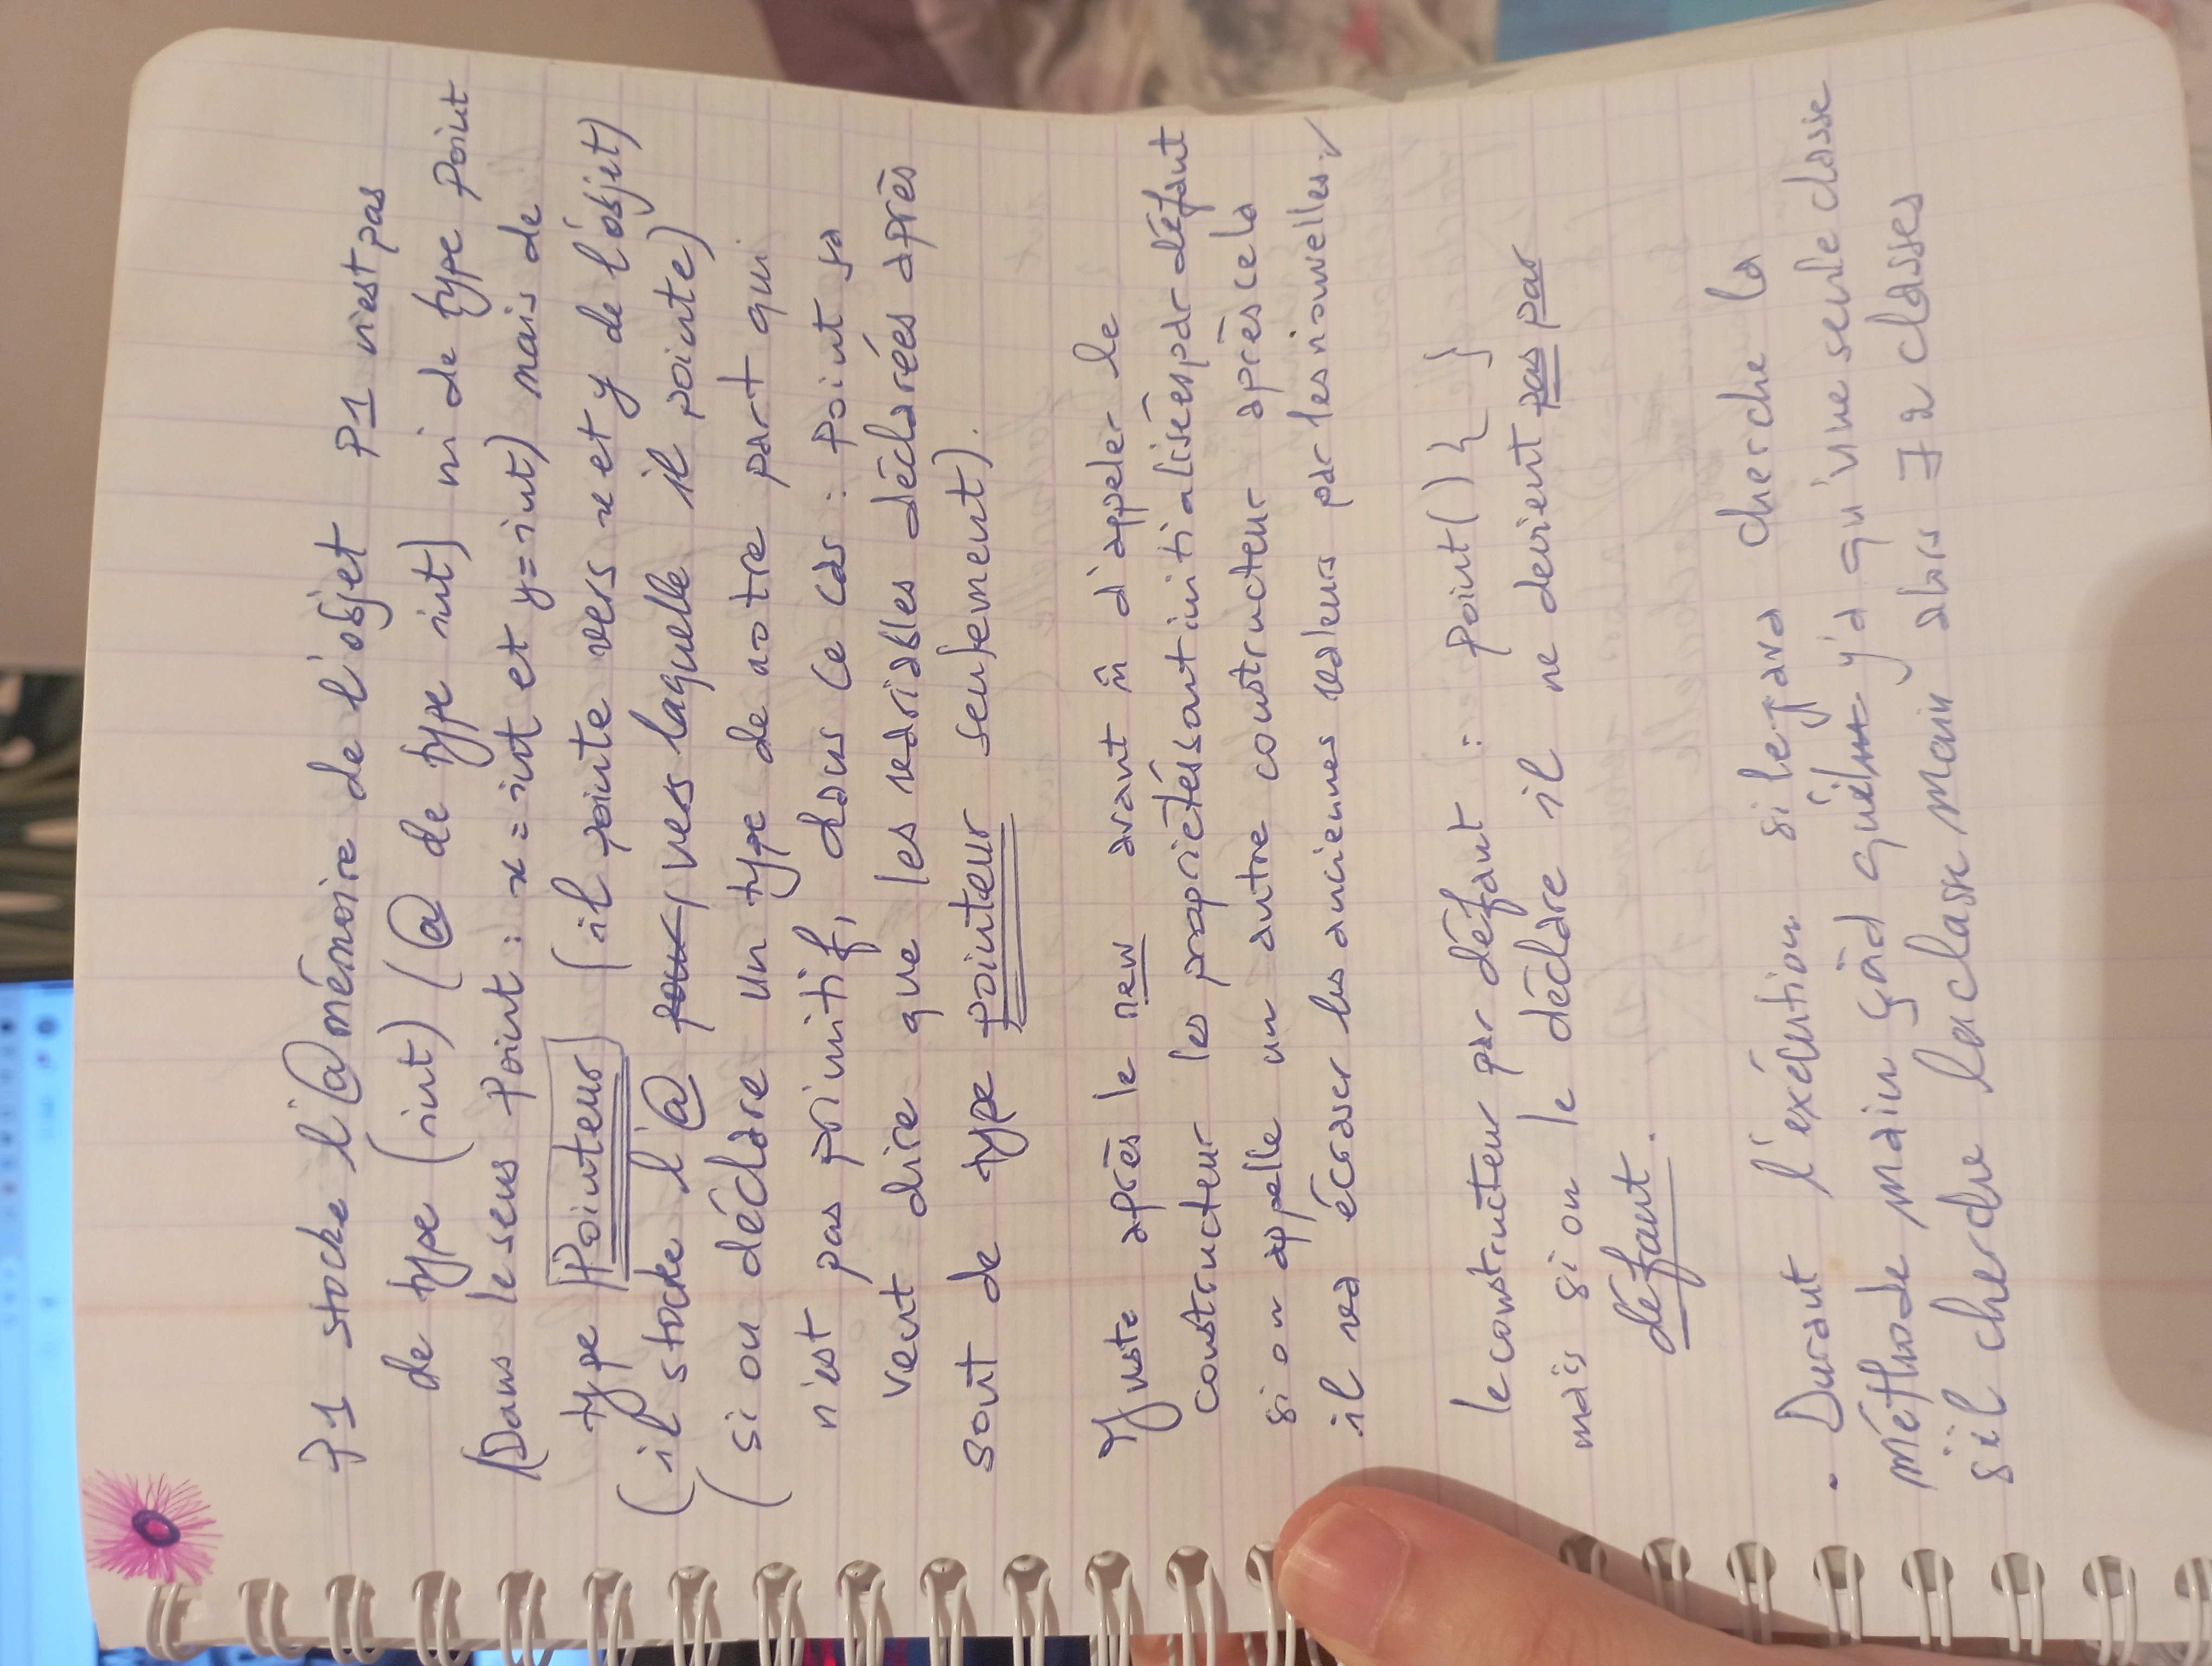 P1 stocke l'@mémoire de l'objet P1 n'est pas
de type (int) (@ de type int) ni de type Point
(Dans le sens Point : x = int et y = int) mais de
type Pointeur (il pointe vers x et y de l'objet)
(il stocke l'@ pour, vers laquelle il pointe)
(si on déclare un type de notre part qui
n'est pas primitif, dans ce cas : Point ça
veut dire que les variables déclarées après
sont de type pointeur seulement).
Juste après le new avant m̂ d'appeler le
constructeur les propriétés sont initialisées par défaut
si on appelle un autre constructeur après cela
il va écraser les anciennes valeurs par les nouvelles.
le constructeur par défaut : Point() { }
mais si on le déclare il ne devient pas par
défaut.
. Durant l'exécution si le java cherche la
méthode main çàd qu'il y'a qu'une seule classe
s'il cherche la classe main alors ∃ 2 classes